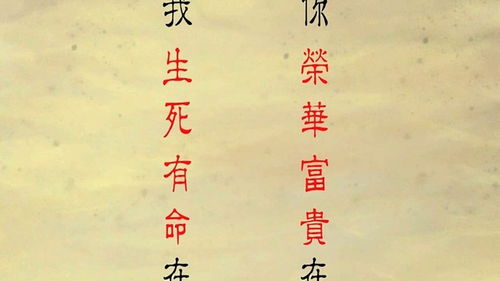 你榮華富貴在
我生死有命在